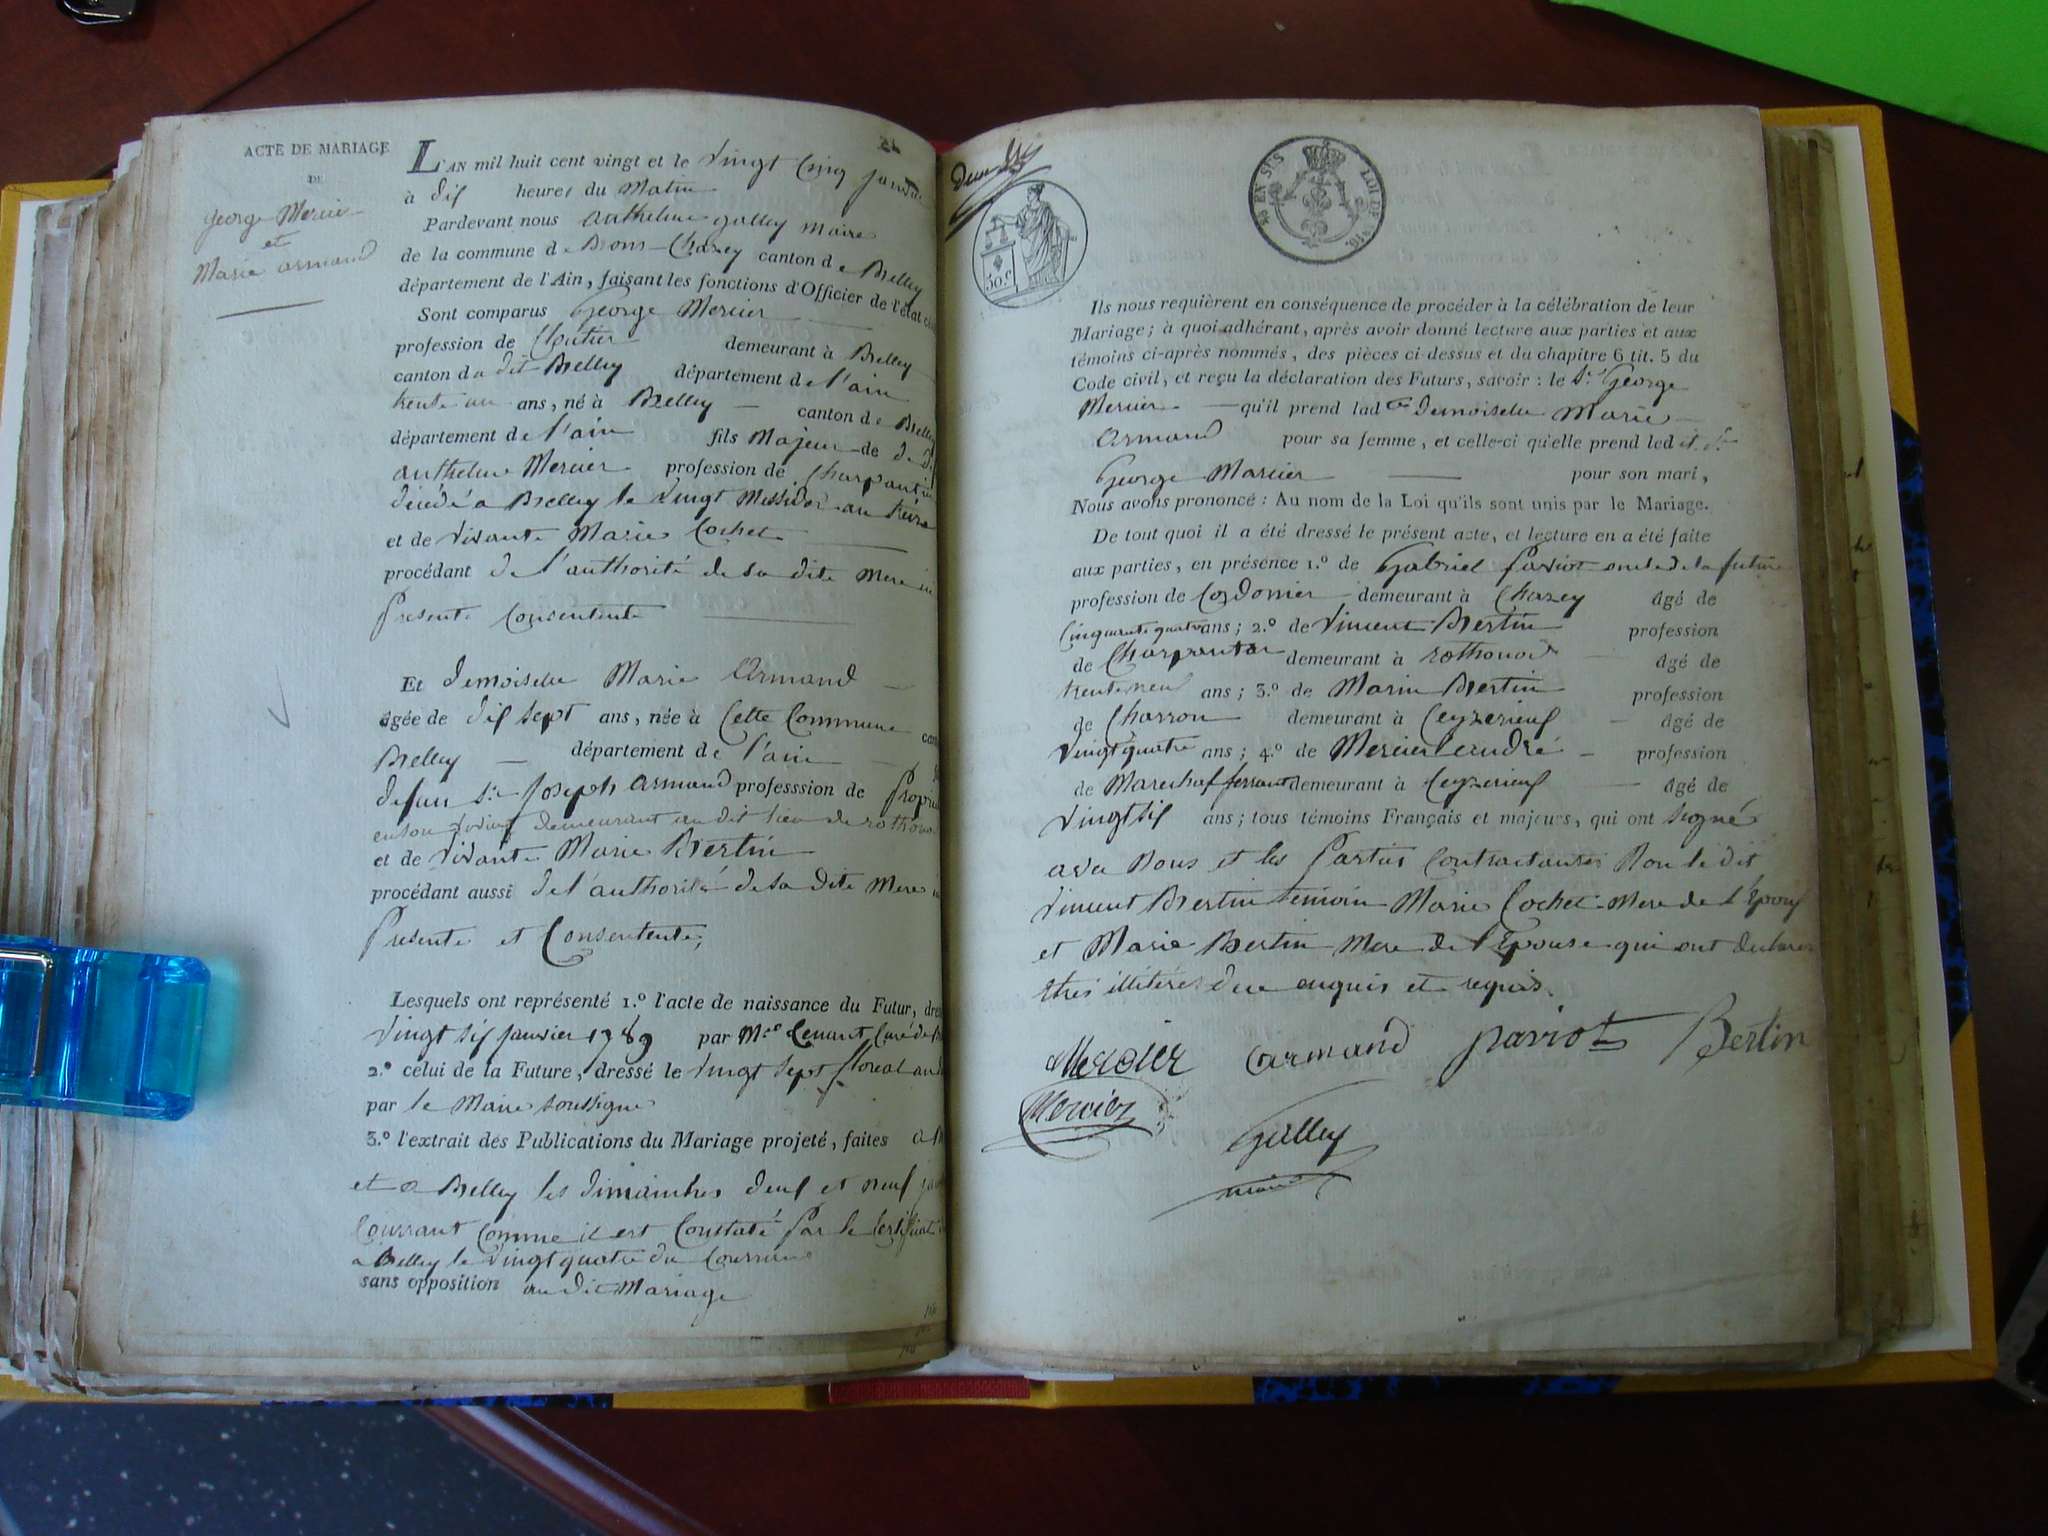 ACTE DE MARIAGE
DE
George Mercier
et
Marie armand
L'AN mil huit cent vingt et le vingt Cinq janvier
à dix heures du Matin
Pardevant nous anthelme galley maire
de la commune de Brens-Chazey canton de Belley
département de l'Ain, faisant les fonctions d'Officier de l'état
Sont comparus George Mercier
profession de demeurant à Belley
canton du dit Belley département de l'ain
trente un ans, né à Belley canton de Belley
département de l'ain fils Majeur de
anthelme Mercier profession de Charpantier
décédé a Belley le vingt Messidor an treize
et de vivante Marie Cochet
procédant de l'authorité de sa dite mere
Presente Consentente
Et demoiselle Marie Armand
âgée de dix sept ans, née à Cette Commune
Belley département de l'ain
defun Sr Joseph armand professsion de
en son vivant demeurant au dit lieu de
et de vivante Marie Bertin
procédant aussi de l'authorité de sa dite mere
Presente et Consentente,
Lesquels ont représenté 1.º l'acte de naissance du Futur,
vingt six janvier 1789 par Curé de
2.º celui de la Future, dressé le vingt sept floreal an
par le Maire soussigne
3.º l'extrait des Publications du Mariage projeté, faites a
et a Belley les dimainches deux et neuf
Courrant Comme il est Constaté Par le Certificat
a Belley le vingt quatre du Courrant
sans opposition au dit Mariage
50.c
EN SUS LOI DE 1816.
Ils nous requièrent en conséquence de procéder à la célébration de leur
Mariage; à quoi adhérant, après avoir donné lecture aux parties et aux
témoins ci-après nommés, des pièces ci-dessus et du chapitre 6 tit. 5 du
Code civil, et reçu la déclaration des Futurs, savoir: le Sr George
Mercier qu'il prend lad te demoiselle Marie
Armand pour sa femme, et celle-ci qu'elle prend led it Sr
George Marcier pour son mari,
Nous avons prononcé: Au nom de la Loi qu'ils sont unis par le Mariage.
De tout quoi il a été dressé le présent acte, et lecture en a été faite
aux parties, en présence 1.º de Gabriel Paviot oncle de la future
profession de Cordonier demeurant à Chazey âgé de
Cinquante quatre ans; 2.º de Vincent Bertin profession
de Charpantier demeurant à rothonod âgé de
trente neuf ans; 3.º de Marin Bertin profession
de Charron demeurant à Ceyzerieux âgé de
Vingt quatre ans; 4.º de Mercier andré profession
de Marechal ferrant demeurant à Ceyzerieux âgé de
Vingt six ans; tous témoins Français et majeurs, qui ont signé
avec Nous et les Parties Contractantes Non le dit
Vincent Bertin témoin Marie Cochet Mere de l'Epoux
et Marie Bertin Mere de l'Epouse qui ont declares
etres illitérés de ce enquis et requis.
Mercier armand paviot Bertin
Mercier
Galley
maire